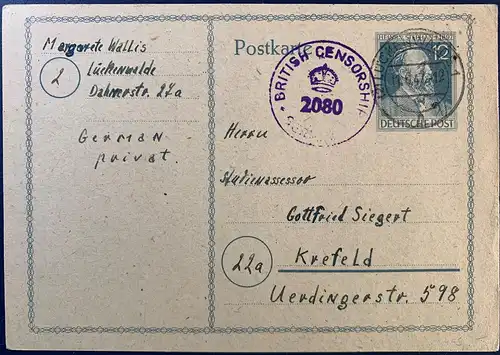 Margarete Wallis
2
Lückenwalde
Dahmerstr. 27a
German
privat.
Postkarte
BRITISH CENSORSHIP
2080
12
DEUTSCHE POST
Herrn
Studienassessor
Gottfried Siegert
22a
Krefeld
Uerdingerstr. 598